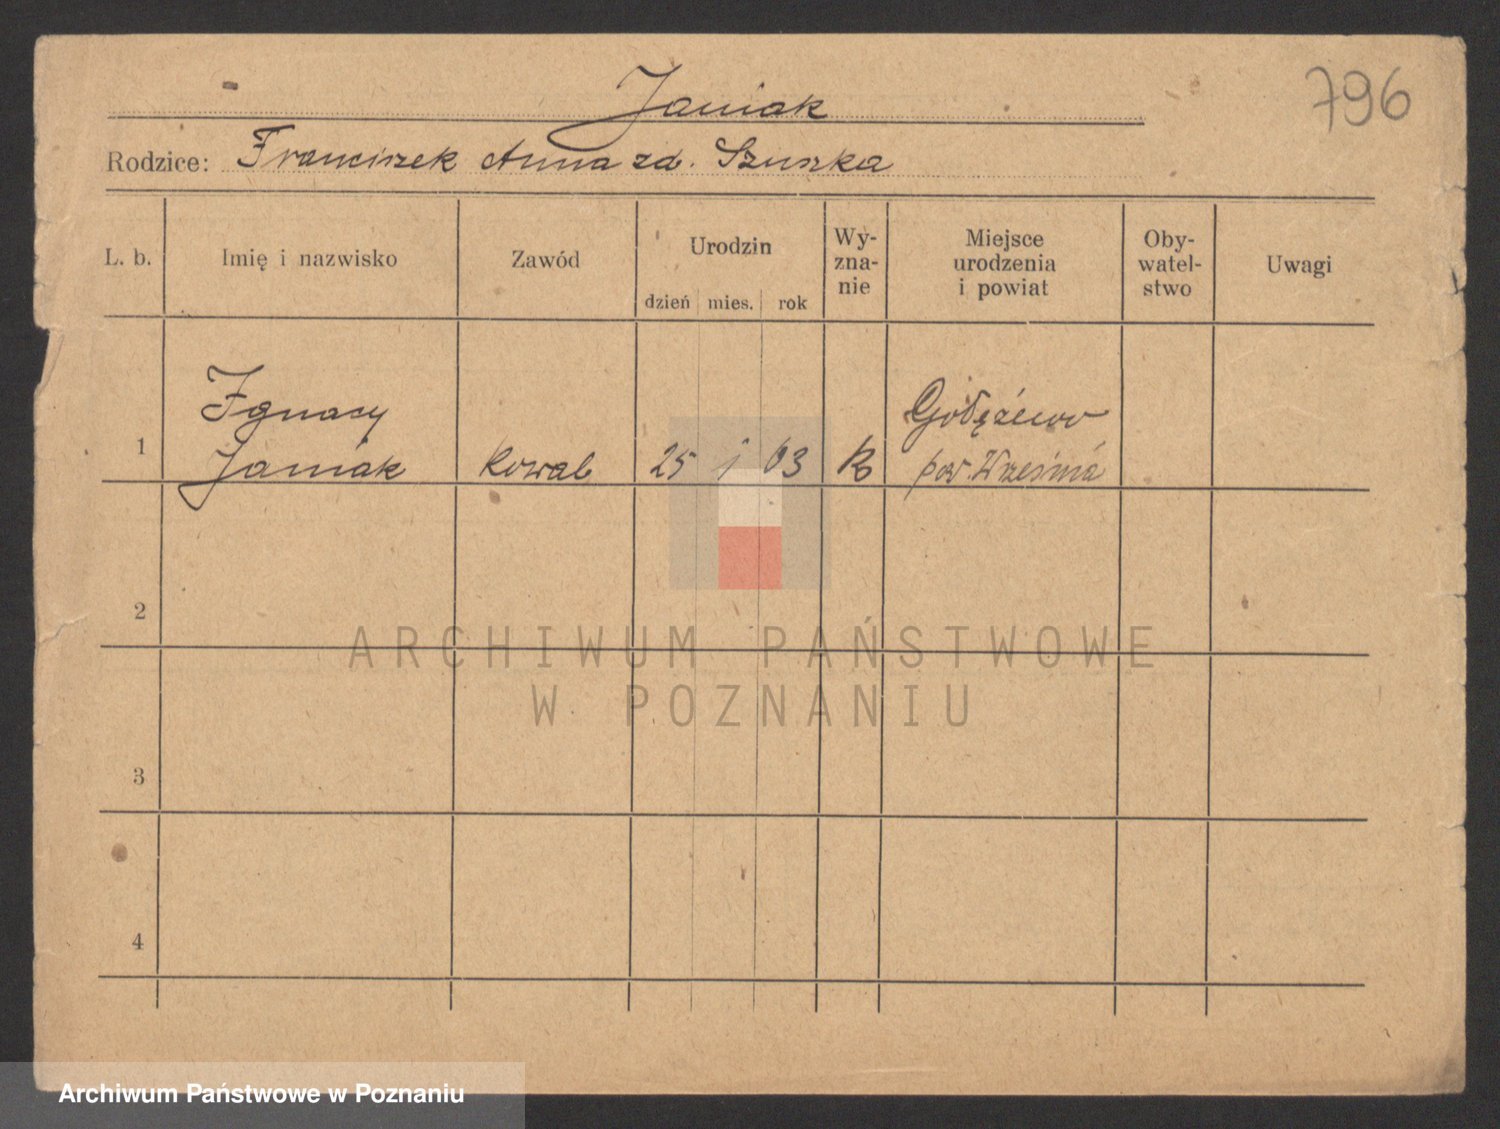 796
Janiak
Rodzice: Franciszek Anna zd. Szuszka
L. b.
Imię i nazwisko
Zawód
Urodzin
dzień mies. rok
Wy-
zna-
nie
Miejsce
urodzenia
i powiat
Oby-
watel-
stwo
Uwagi
1
Ignacy
Janiak
kowal
25 1 03
k
pow. Września
2
3
4
ARCHIWUM PAŃSTWOWE
W POZNANIU
Archiwum Państwowe w Poznaniu